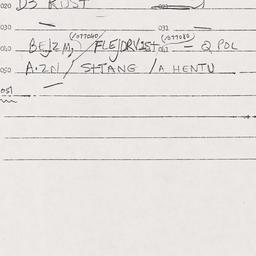 020 D3 RUST
030 032
(1077040) (1077080)
040 BE/ZM, / FLE/DRVIST 042 — Q POL
050 A.ZN / SHTANG / A HENTU
051